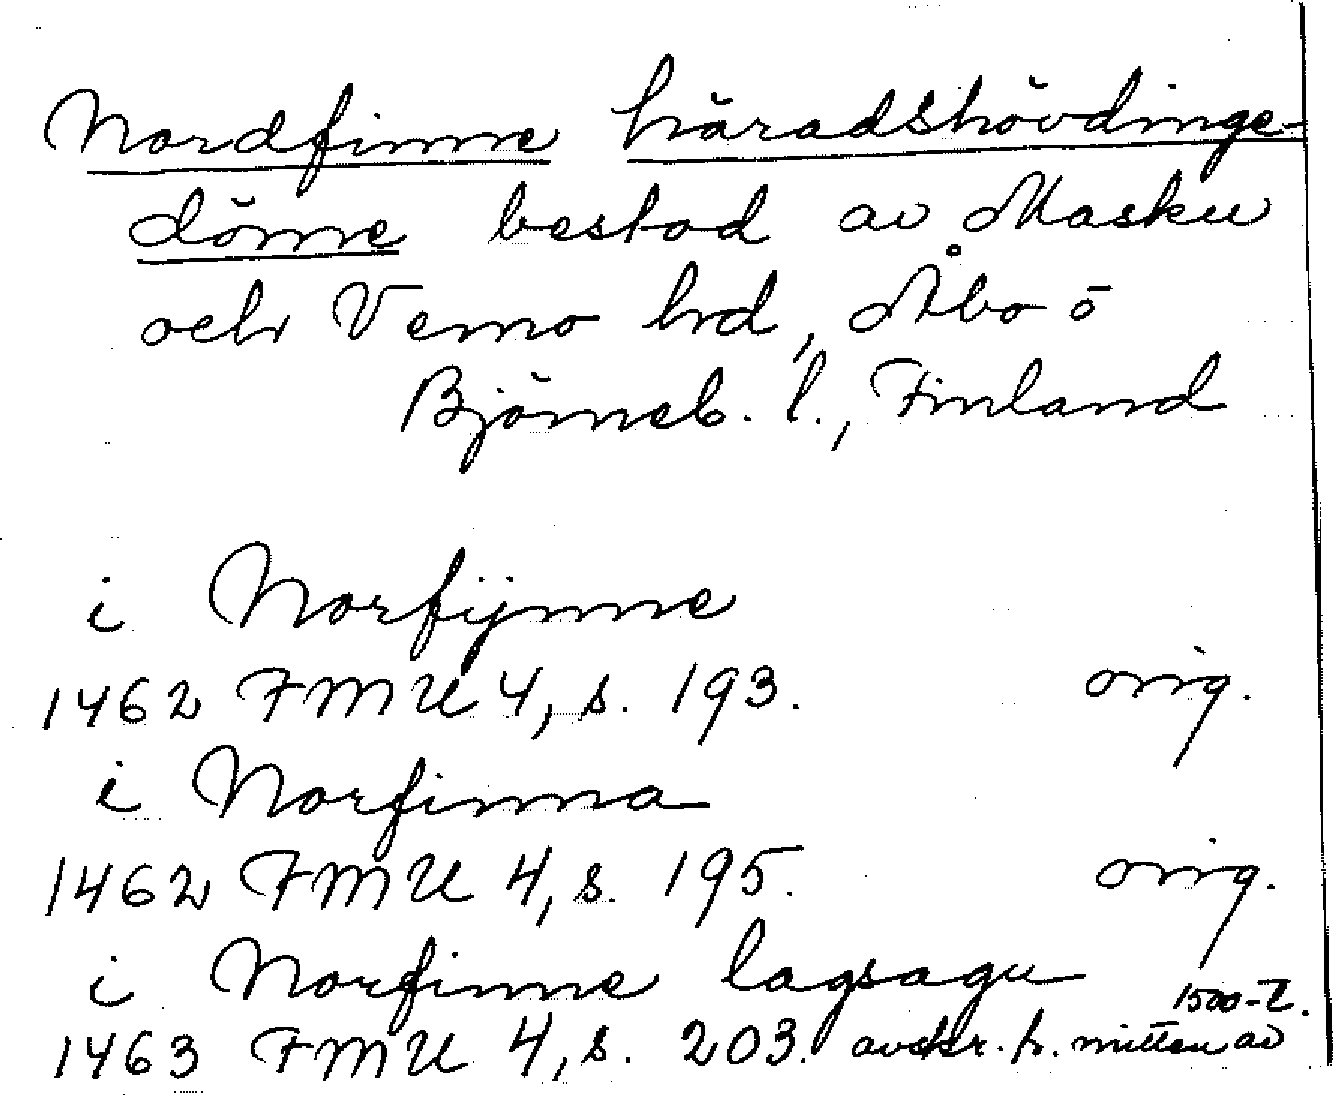 Nordfinne häradshövdinge-
döme bestod av Masku
och Vemo hd, Åbo o
Björneb. l., Finland
i Norfijnne
1462 FMU 4, s. 193. orig.
i Norfinna
1462 FMU 4, s. 195. orig.
i Norfinne lagsagu
1463 FMU 4, s. 203. avskr. fr. mitten av
1500-t.